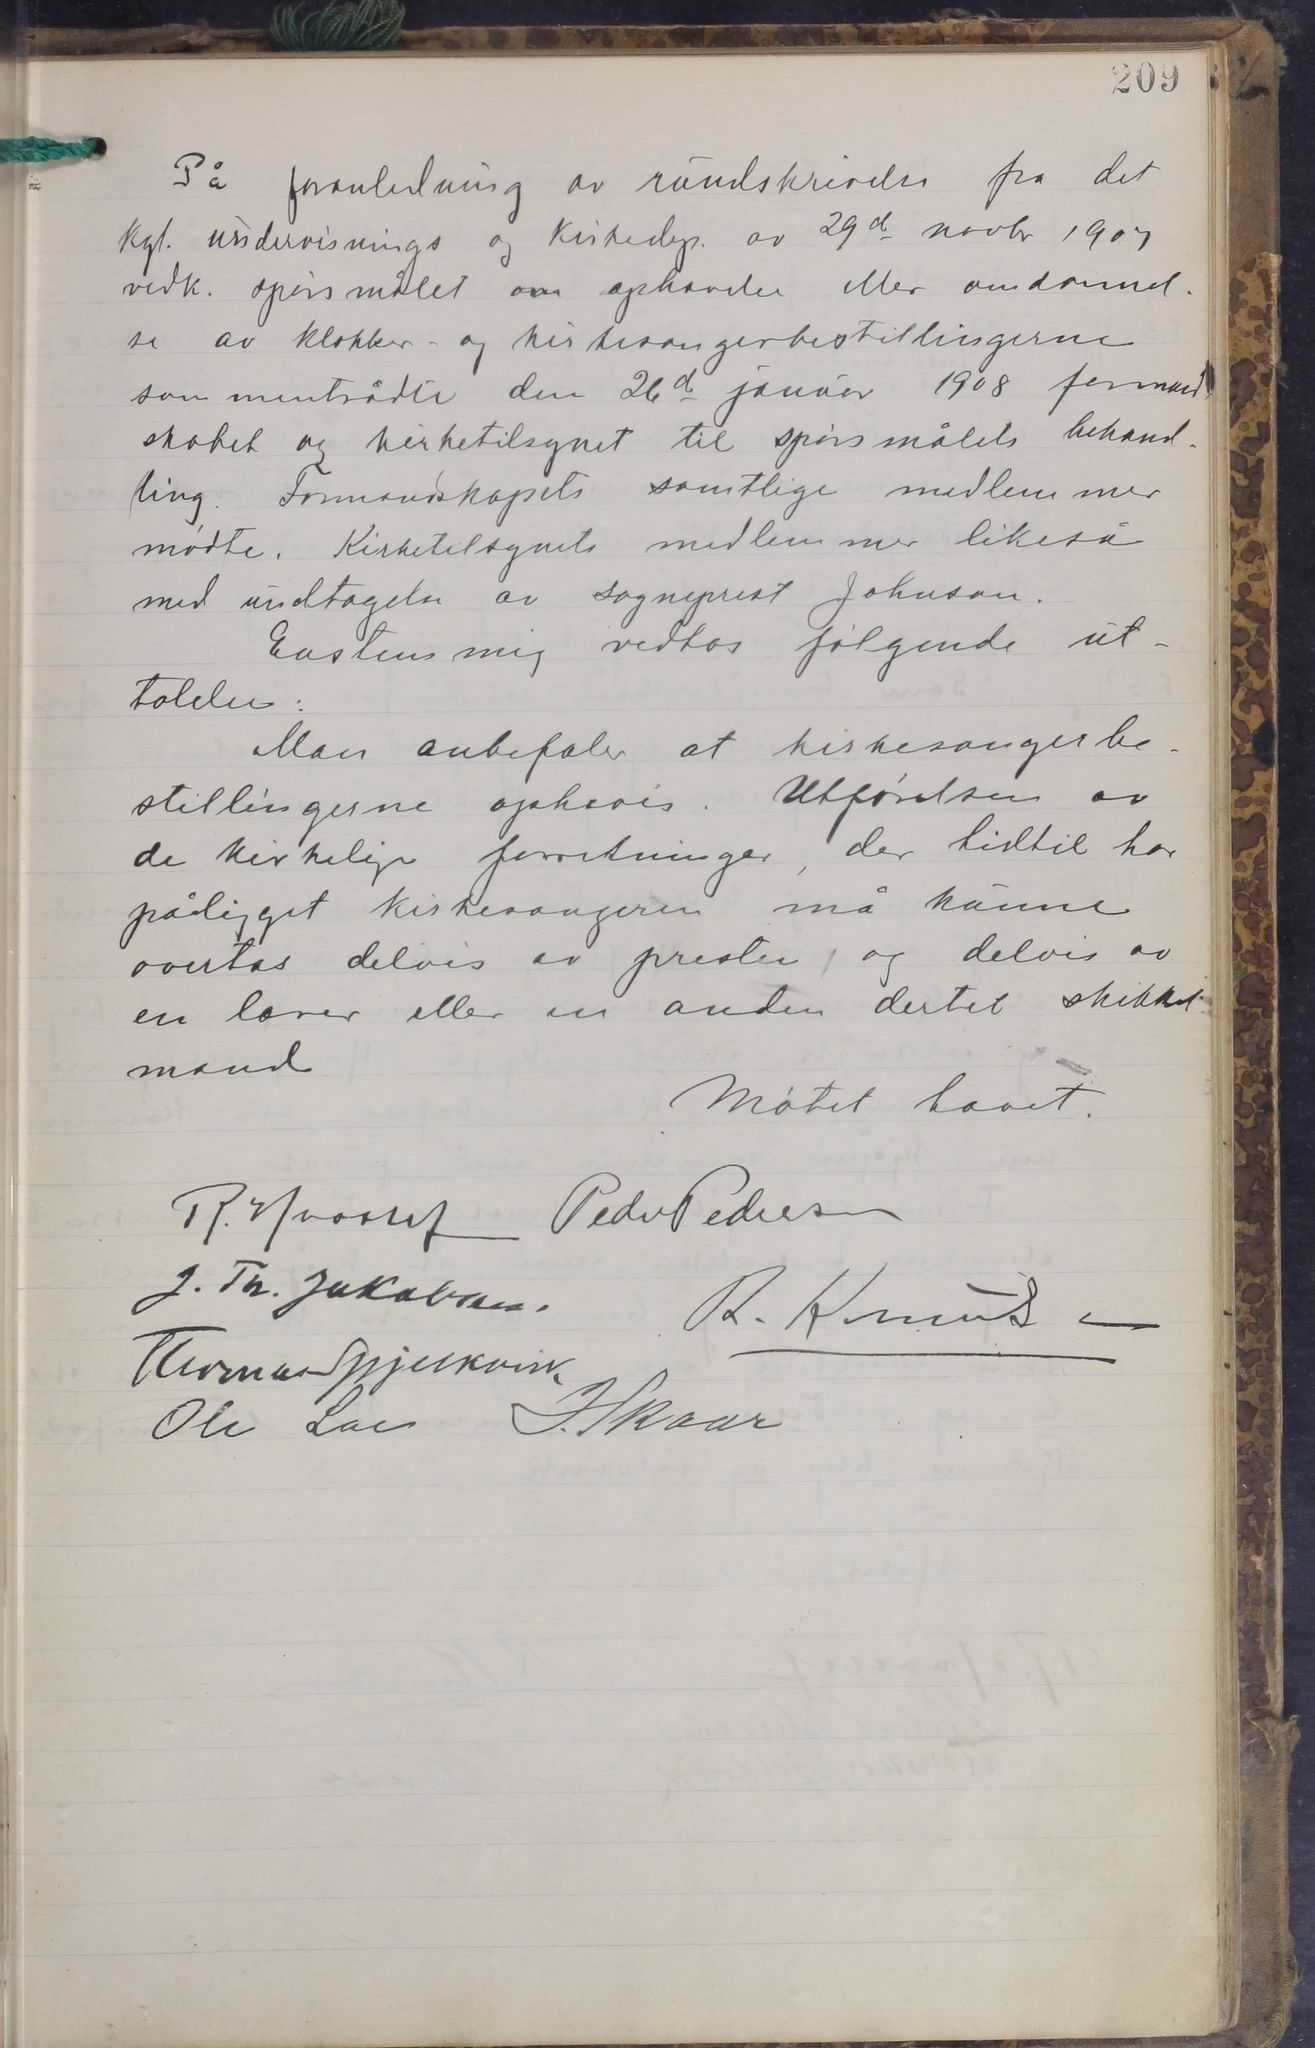 209
På foranledning av rundskrivelse fra det
kgl. undervisnings og kirkedep. av 29d novbr 1907
vedk. spørsmålet om ophævelse eller omdannel-
se av klokker- og kirkesangerbestillingerne
sammentrådte den 26d januar 1908 formand
skabet og kirketilsynet til spørsmålets behand-
ling. Formandskapets samtlige medlemmer
mødte. Kirketilsynets medlemmer likeså
med undtagelse av sogneprest Johnson.
Enstemmig vedtas følgende ut-
talelse:
Man anbefaler at kirkesangerbe-
stillingerne ophæves. Utførelsen av
de kirkelige forretninger, der hidtil har
påligget kirkesangeren må kunne
overtas delvis av presten, og delvis av
en lærer eller en anden dertil skikket
mand
Møtet hævet.
Peder Pedersen
J. Th. Jakobsen.
R. Knudsen
Ole Lae J. Skaar